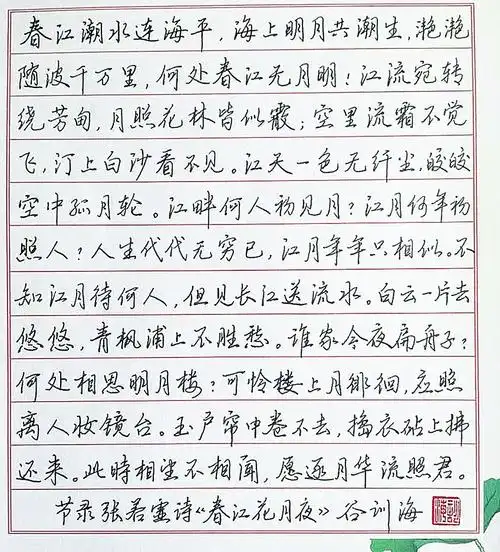 春江潮水连海平,海上明月共潮生,滟滟
随波千万里,何处春江无月明!江流宛转
绕芳甸,月照花林皆似霰;空里流霜不觉
飞,汀上白沙看不见。江天一色无纤尘,皎皎
空中孤月轮。江畔何人初见月?江月何年初
照人?人生代代无穷已,江月年年只相似。不
知江月待何人,但见长江送流水。白云一片去
悠悠,青枫浦上不胜愁。谁家今夜扁舟子?
何处相思明月楼?可怜楼上月徘徊,应照
离人妆镜台。玉户帘中卷不去,捣衣砧上拂
还来。此時相望不相闻,愿逐月华流照君。
节录张若虚诗《春江花月夜》谷训海